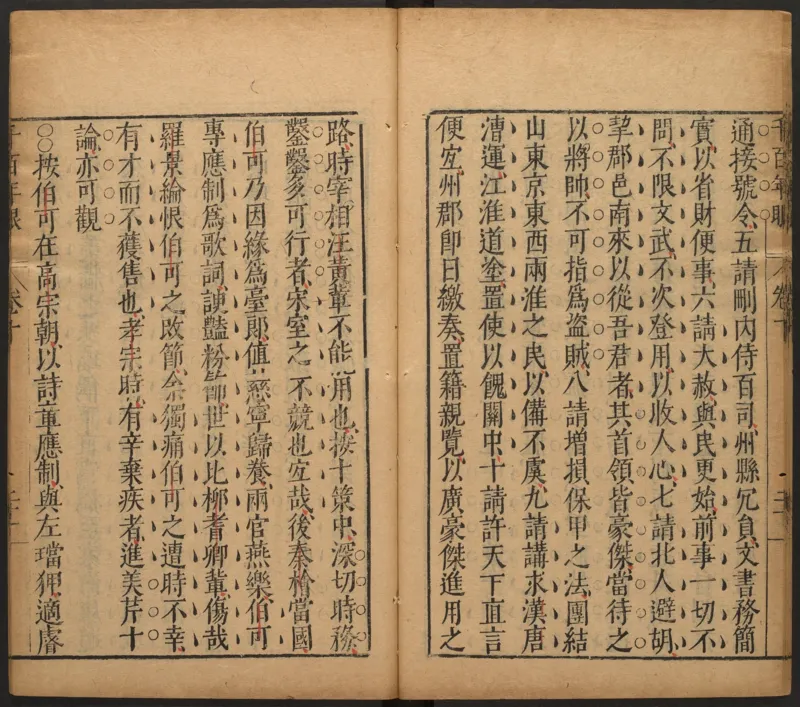 千百年眼 卷十
通接號令五請刪內侍百司州縣冗負文書務簡
實以省財便事六請大赦與民更始前事一切不
問不限文武不次登用以收人心七請北人避胡
挈郡邑南來以從吾君者其首領皆豪傑當待之
以將帥不可指爲盜賊八請增損保甲之法團結
山東京東西兩淮之民以備不虞九請講求漢唐
漕運江淮道塗置使以餽關中十請許天下直言
便宜州郡卽日繳奏置籍親覽以廣豪傑進用之
路時宰相汪黃輩不能用也按十策中深切時務
鑿鑿多可行者宋室之不競也宜哉後秦檜當國
伯可乃因緣爲臺郎值慈寧歸養兩宫燕樂伯可
專應制爲歌詞諛豔粉飾世以比柳耆卿輩傷哉
羅景綸恨伯可之改節余獨痛伯可之遭時不幸
有才而不獲售也孝宗時有辛棄疾者進美芹十
論亦可觀
按伯可在高宗朝以詩章應制與左璫狎適睿
千百年眼 卷十